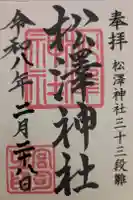 奉拝
松澤神社三十三段雛
松澤神社
令和八年二月二十八日